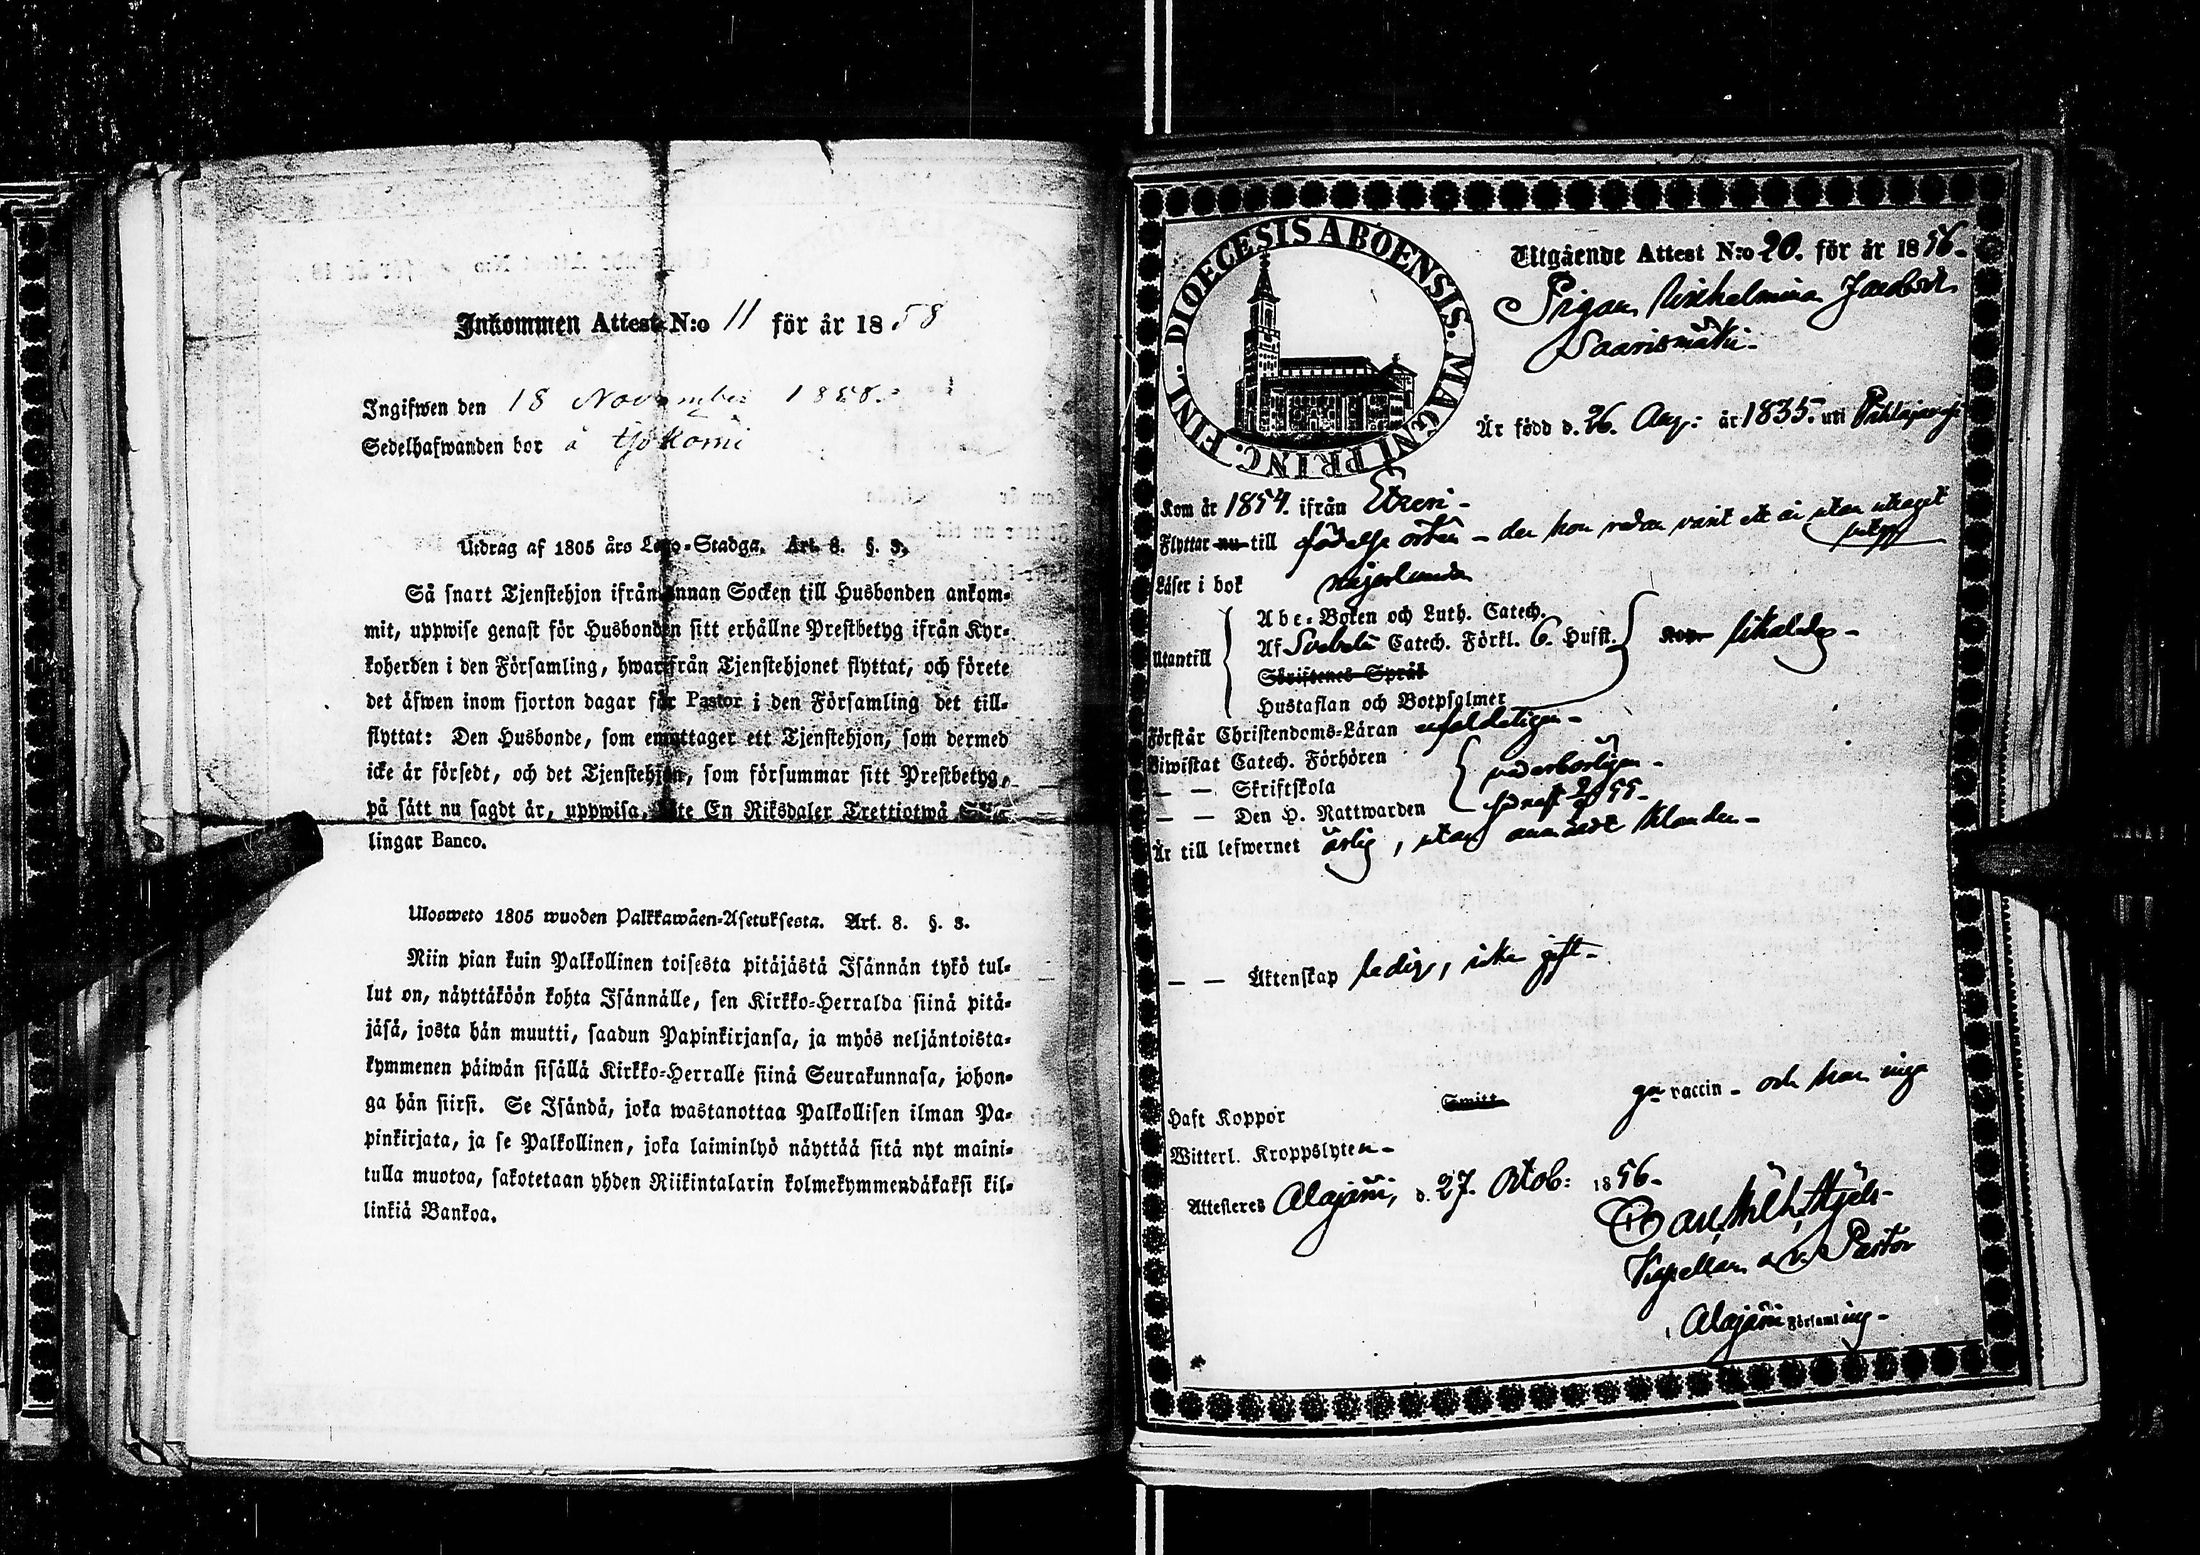 Inkommen Attest N:o 11 för år 1858
Ingifwen den 18 November 1858.
Sedelhafwanden bor å
Utdrag af 1805 års Lego-Stadga. Art. 8. §. 3.
Så snart Tjenstehjon ifrån annan Socken till Husbonden ankom-
mit, uppwise genast för Husbonden sitt erhållne Prestbetyg ifrån Kyr-
koherden i den Församling, hwarifrån Tjenstehjonet flyttat, och förete
det äfwen inom fjorton dagar för Pastor i den Församling det till-
flyttat: Den Husbonde, som emottager ett Tjenstehjon, som dermed
icke är försedt, och det Tjenstehjon, som försummar sitt Prestbetyg,
på sätt nu sagdt är, uppwisa, böte En Riksdaler Trettiotwå Skil-
lingar Banco.
Ulosweto 1805 wuoden Palkkawäen-Asetuksesta. Art. 8. §. 3.
Niin pian kuin Palkollinen toisesta pitäjästä Isännän tykö tul-
lut on, näyttäköön kohta Isännälle, sen Kirkko-Herralda siinä pitä-
jäsä, josta hän muutti, saadun Papinkirjansa, ja myös neljäntoista-
kymmenen päiwän sisällä Kirkko-Herralle siinä Seurakunnasa, johon-
ga hän siirsi. Se Isändä, joka wastanottaa Palkollisen ilman Pa-
pinkirjata, ja se Palkollinen, joka laiminlyö näyttää sitä nyt maini-
tulla muotoa, sakotetaan yhden Riikintalarin kolmekymmendäkaksi kil-
linkiä Bankoa.
DIOECESIS ABOENSIS. MAGNI PRINC. FINL.
Utgående Attest N:o 20. för år 1856.
Pigan Wilhelmina Jacobsdr
Saarismäki
Är född d. 26. Aug: år 1835. uti Pihlajavesi
Kom år 1854. ifrån Etseri
Flyttar nu till födelse orten – der hon redan varit ett år utan uttaget
betyg
Läser i bok
Abc-Boken och Luth. Catech.
Utantill Af Svebelii Catech. Förkl. 6. Hufst.
Skriftenes Språk
Hustaflan och Botpsalmer
Förstår Christendoms-Läran enfaldeligen
Biwistat Catech. Förhören vederbörligen
— — Skriftskola
— — Den H. Nattwarden sednast 55
Är till lefwernet ärlig, utan anmärkt klander
— — Äktenskap ledig, icke gift
Haft Koppor Smitt. gm vaccin – och har inga
Witterl. Kroppslyten
Attesteres Alajärvi, d. 27. Octob: 1856.
Carl Wilh.
Kapellan o. v. Pastor
i Alajärvi Församling